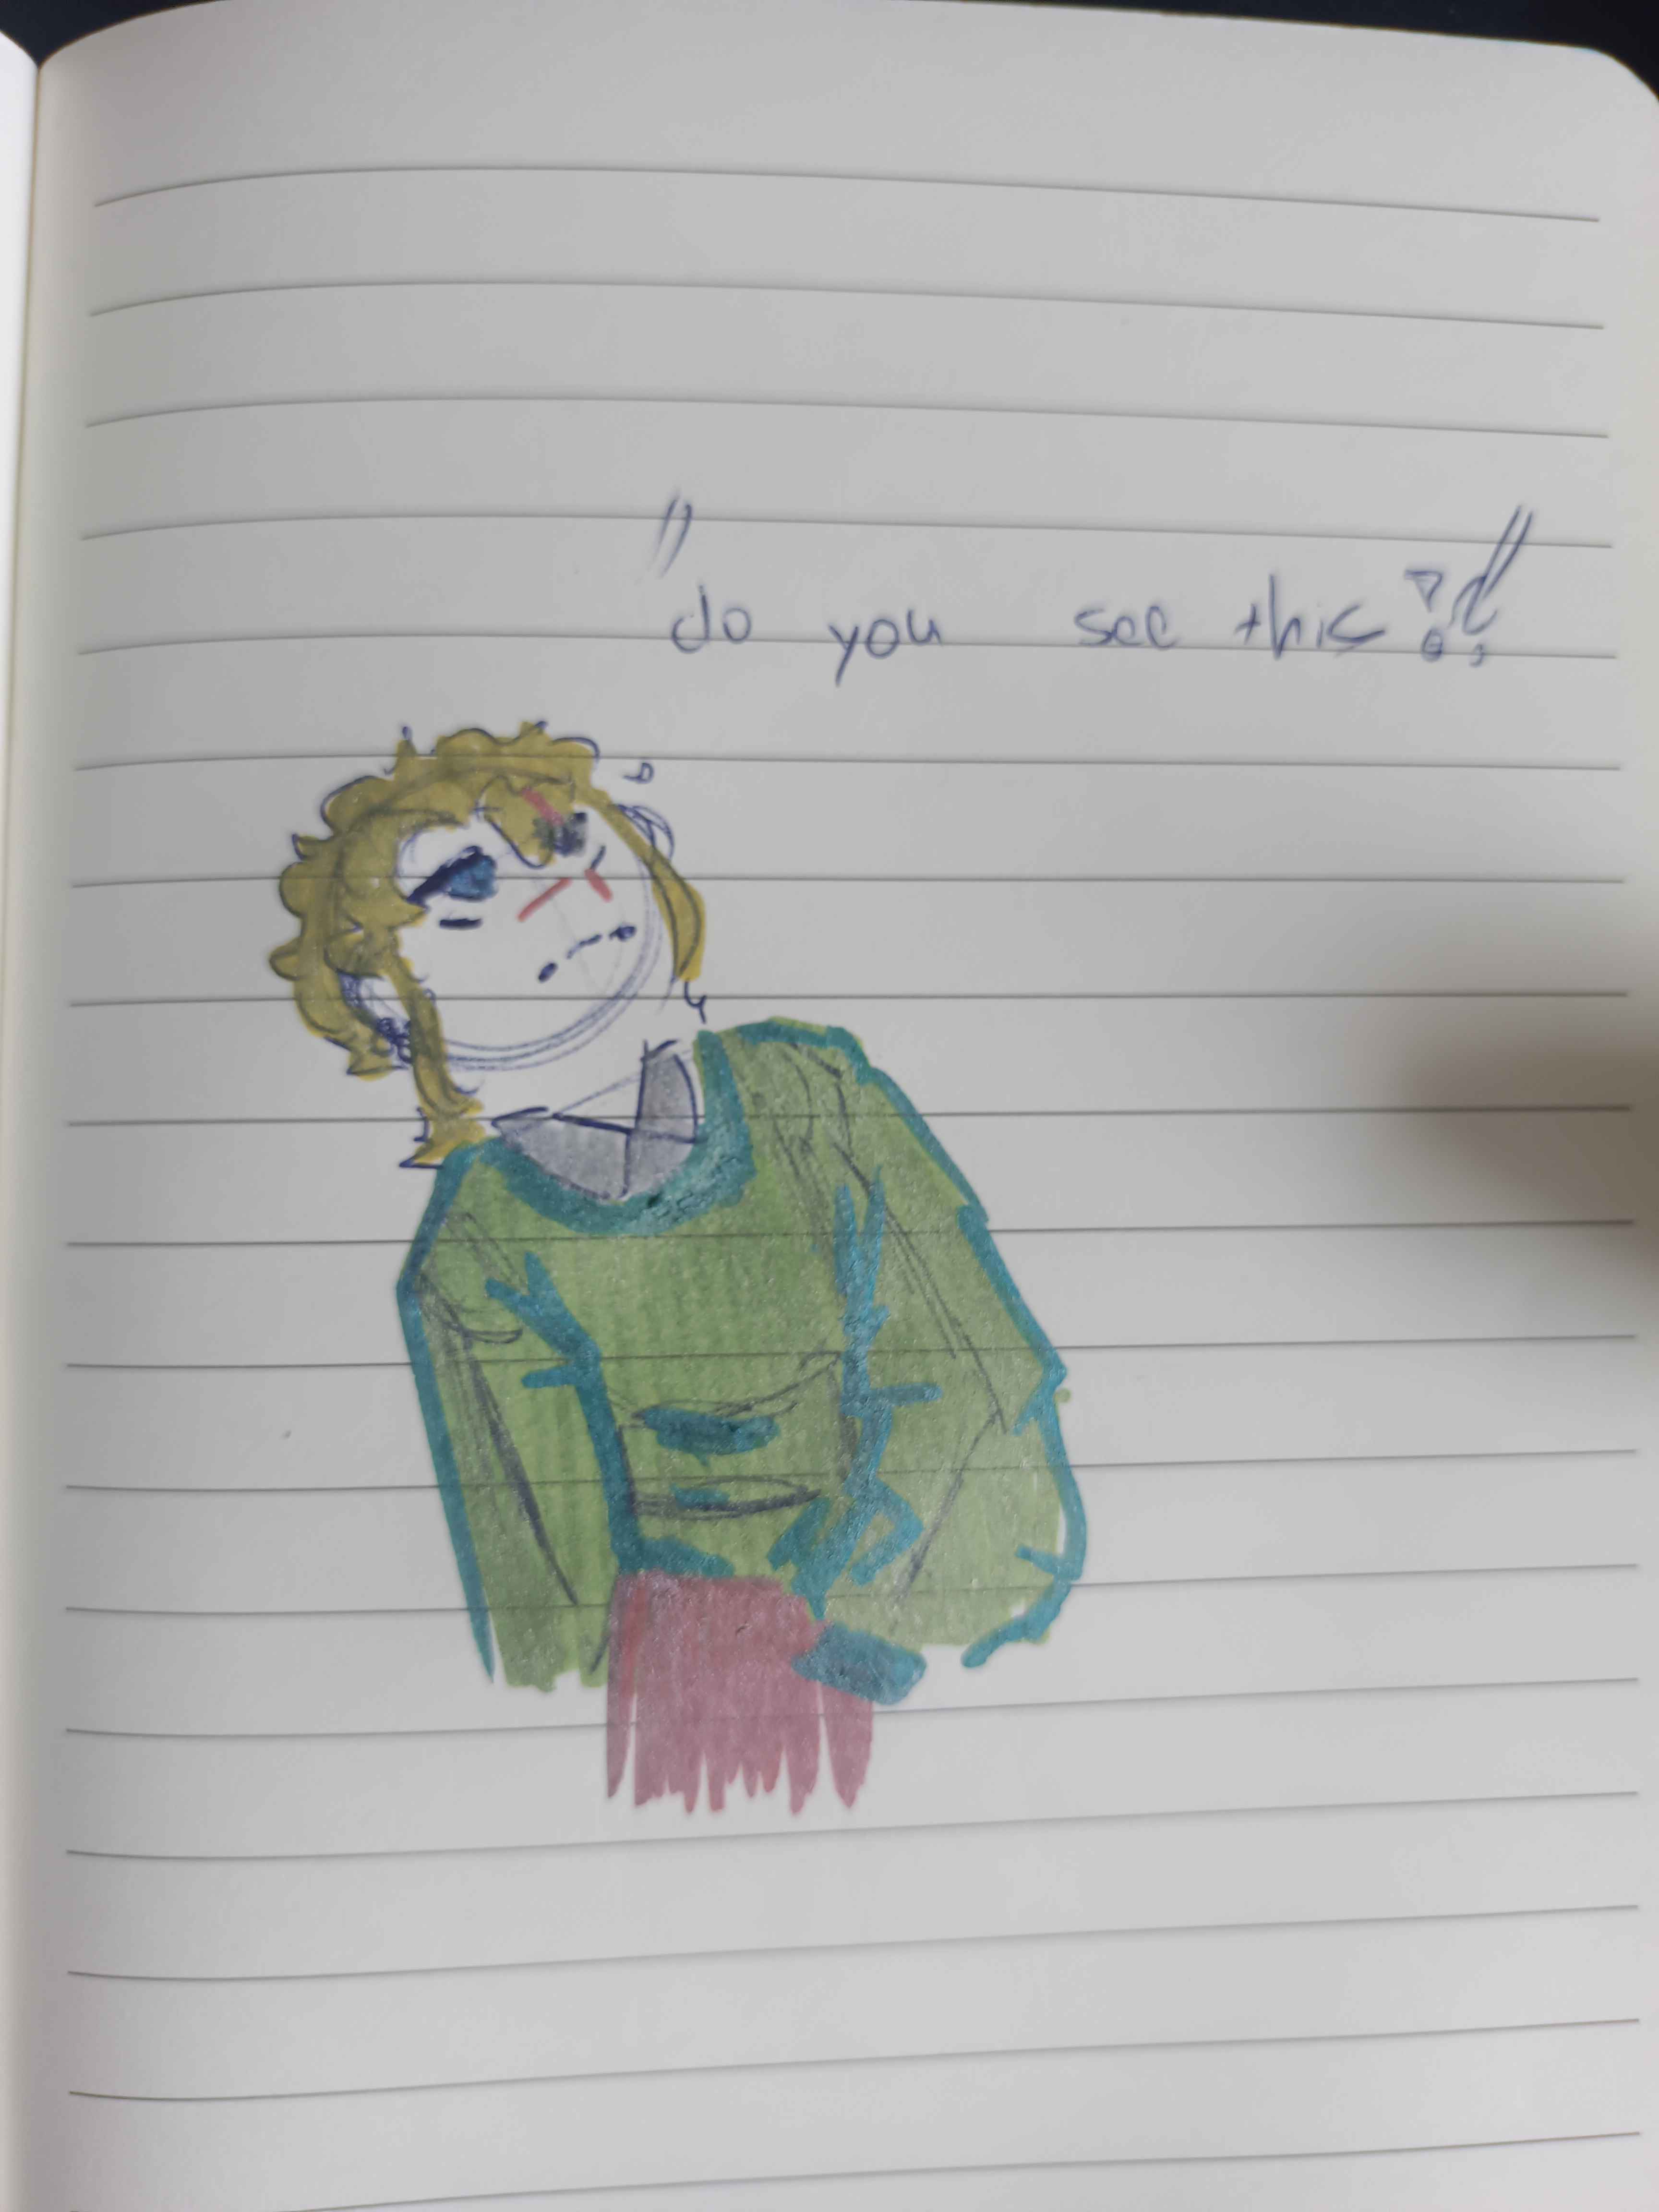 "do you see this?!"